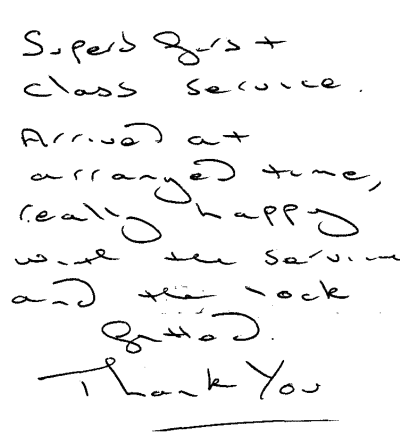 Superb first
class service.
Arrived at
arranged time,
really happy
with the service
and the lock
fitted.
Thank You